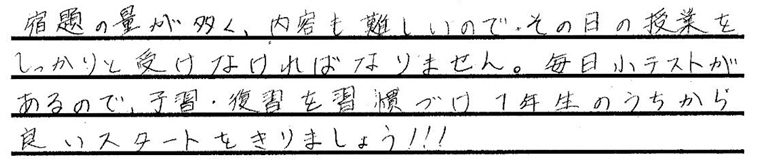 宿題の量が多く、内容も難しいので、その日の授業を
しっかりと受けなければなりません。毎日小テストが
あるので、予習・復習を習慣づけ1年生のうちから
良いスタートをきりましょう!!!